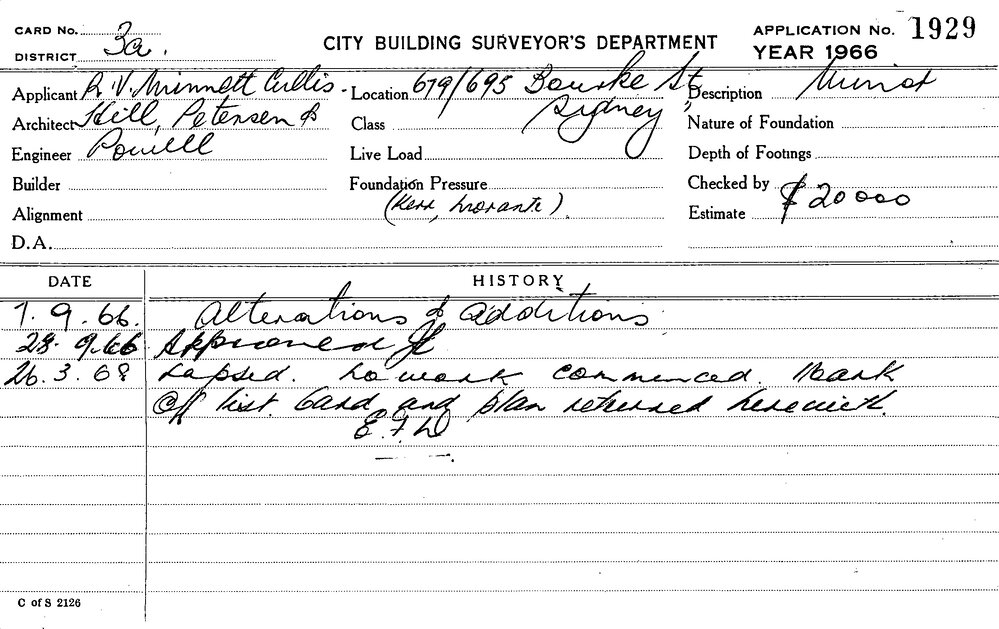 CARD No. 3a.
DISTRICT
CITY BUILDING SURVEYOR'S DEPARTMENT
APPLICATION No. 1929
YEAR 1966
Applicant R V. Minnett Cullis.
Location 679/695 Bourke St,
Sydney
Description Minor
Architect Hill, Petersen &
Class
Nature of Foundation
Engineer Powell
Live Load
Depth of Footings
Builder
Foundation Pressure
Checked by
Alignment
(Kerr, ).
Estimate $20000
D.A.
DATE HISTORY
7.9.66. Alterations & additions
28.9.66 Approved
26.3.68 Lapsed. No work commenced. Mark
Off list. Card and plan returned herewith.
C of S 2126